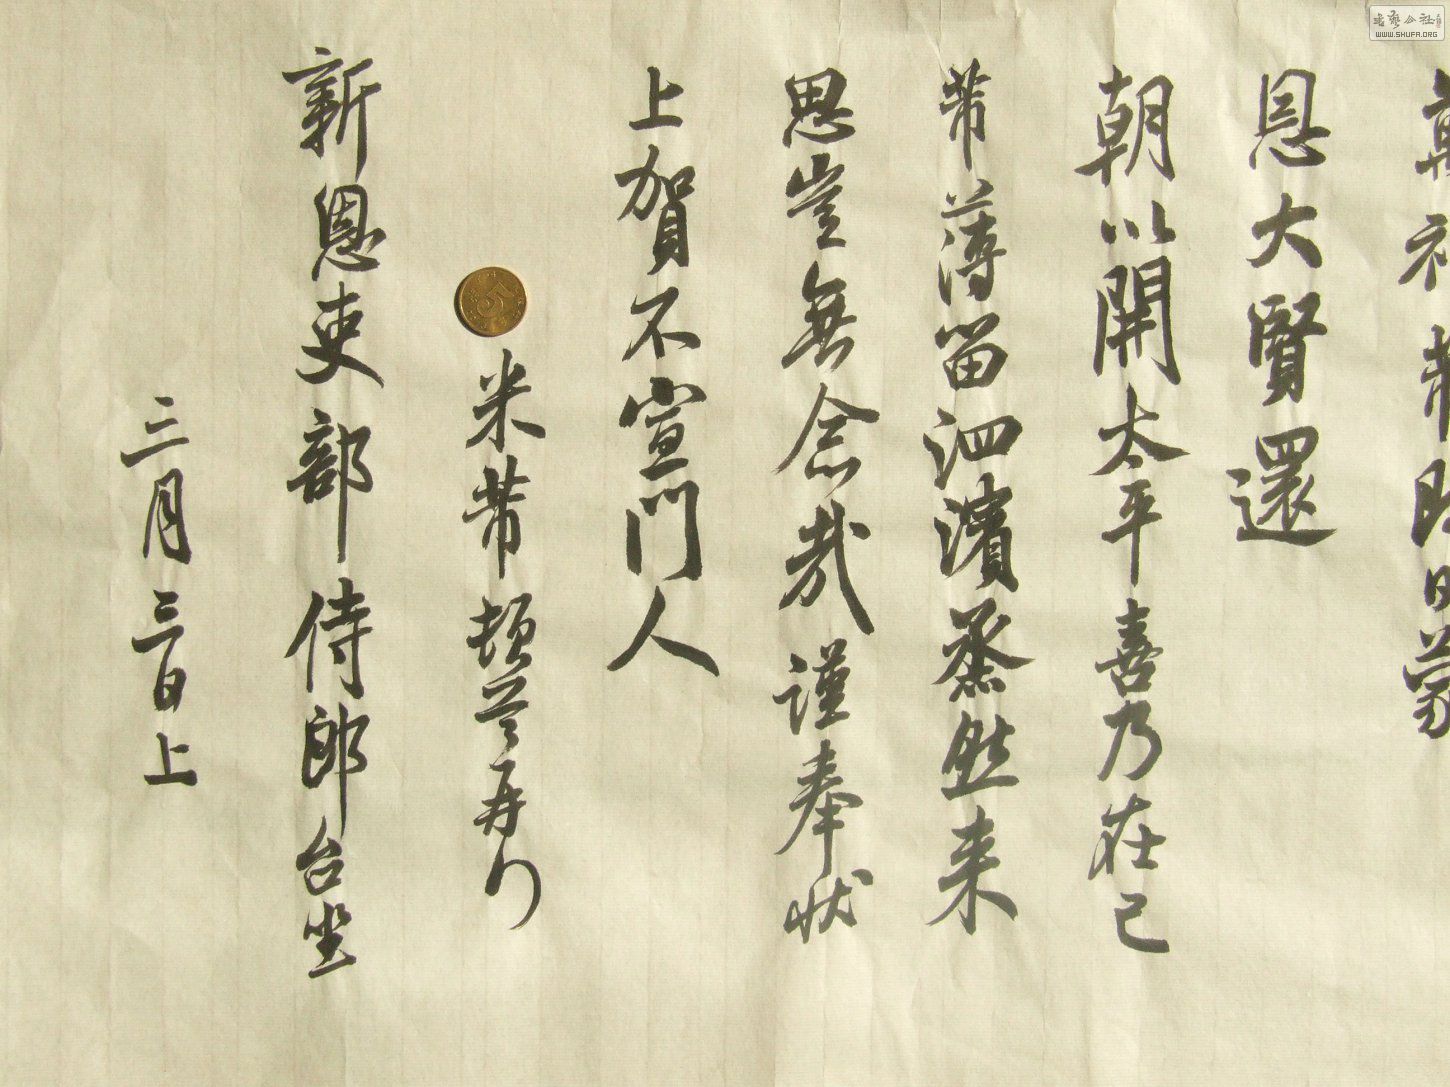 恩大賢還
朝以開太平喜乃在己
芾薄留泗濱烝然来
思豈無念哉謹奉狀
上賀不宣門人
米芾頓首再
新恩吏部侍郎台坐
三月三日上
WWW.SHUFA.ORG